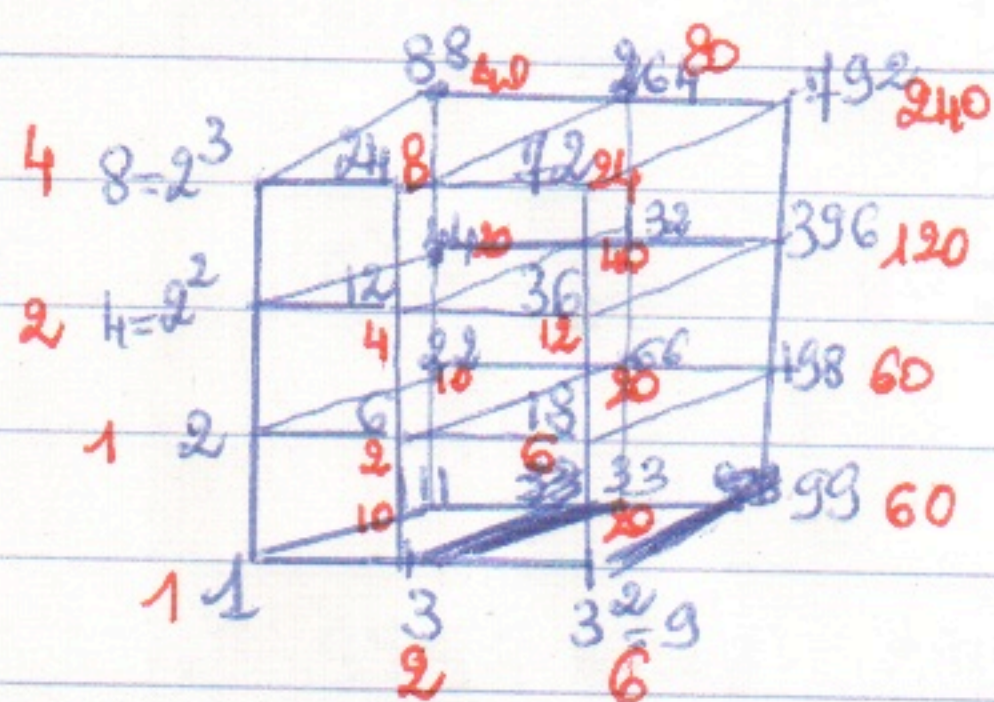 88 40 264 80 792 240
4 8=2³ 24 8 72 24
44 20 40 132 396 120
2 4=2² 12 36
4 12
22 10 66 20 198 60
1 2 6 18
2 6
11 33 33 99 60
10 20
1 1
3 3²=9
2 6